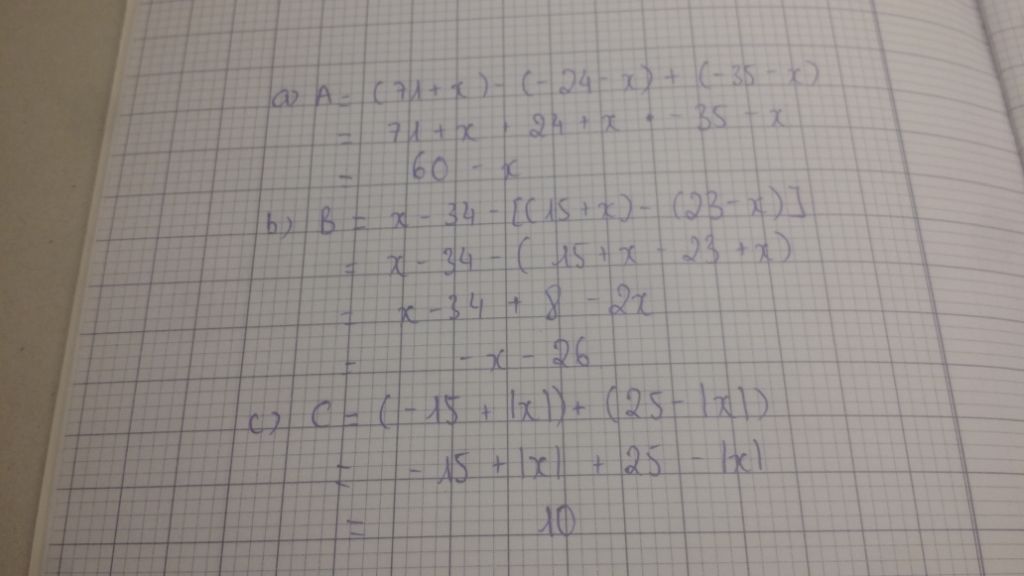 a) A = (71 + x) - (-24 - x) + (-35 - x)
= 71 + x + 24 + x - 35 - x
= 60 - x
b) B = x - 34 - [(15 + x) - (23 - x)]
= x - 34 - ( 15 + x - 23 + x)
= x - 34 + 8 - 2x
= - x - 26
c) C = (-15 + |x|) + (25 - |x|)
= -15 + |x| + 25 - |x|
= 10